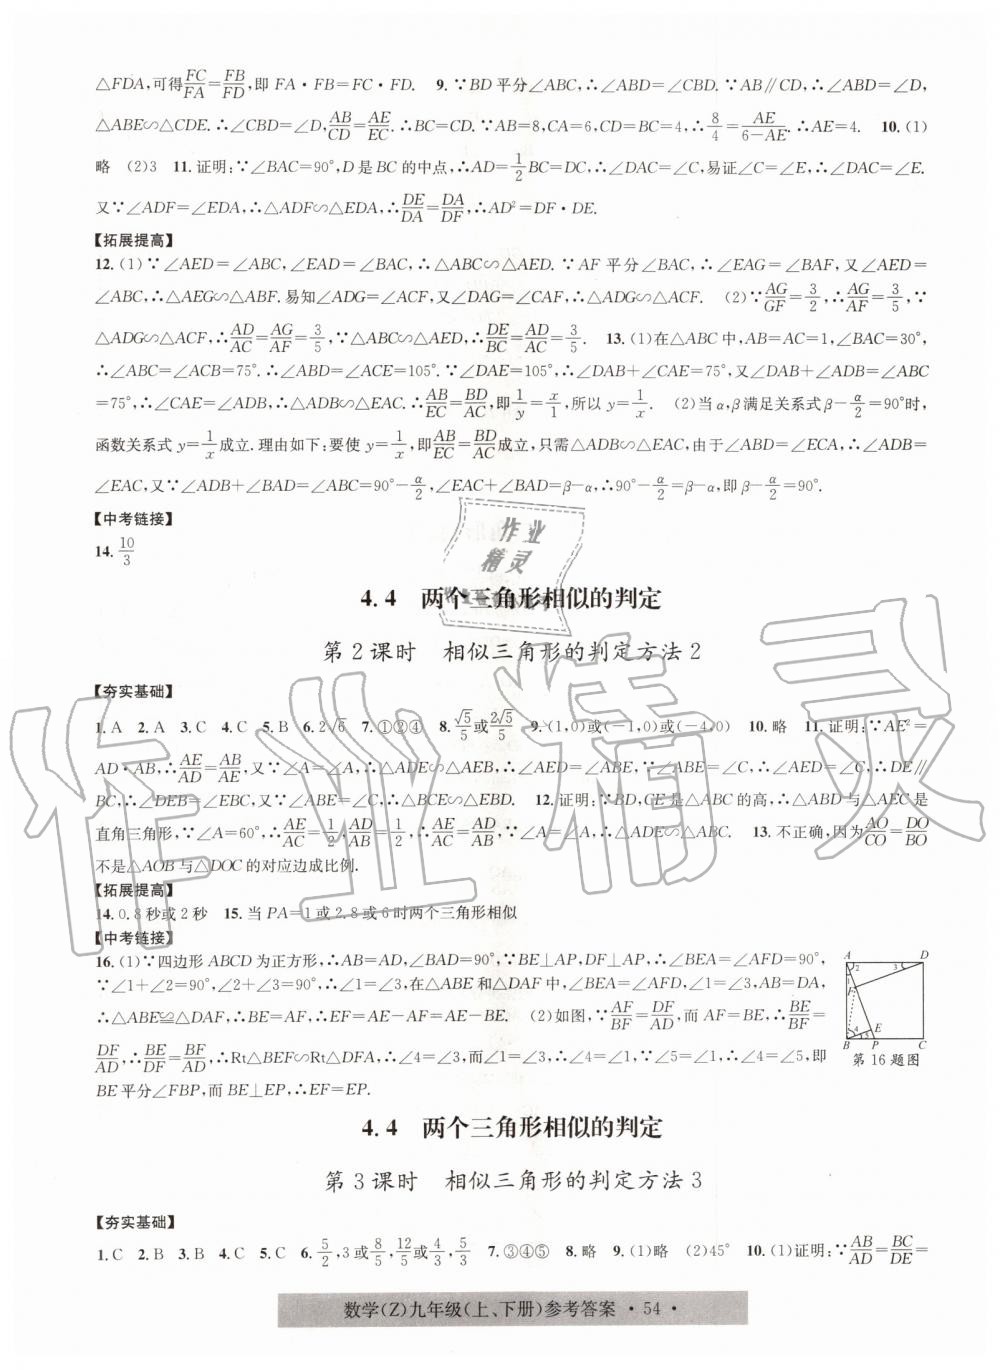 △FDA,可得FC/FA=FB/FD,即 FA·FB=FC·FD. 9.∵BD平分∠ABC,∴∠ABD=∠CBD.∵AB∥CD,∴∠ABD=∠D,
△ABE∽△CDE.∴∠CBD=∠D,AB/CD=AE/EC.∴BC=CD.∵AB=8,CA=6,CD=BC=4,∴8/4=AE/(6-AE).∴AE=4. 10.(1)
略 (2)3 11.证明:∵∠BAC=90°,D是BC的中点,∴AD=1/2BC=DC.∴∠DAC=∠C,易证∠C=∠E,∴∠DAC=∠E.
又∵∠ADF=∠EDA,∴△ADF∽△EDA,∴DE/DA=DA/DF,∴AD²=DF·DE.
【拓展提高】
12.(1)∵∠AED=∠ABC,∠EAD=∠BAC,∴△ABC∽△AED.∵AF平分∠BAC,∴∠EAG=∠BAF,又∠AED=
∠ABC,∴△AEG∽△ABF.易知∠ADG=∠ACF,又∠DAG=∠CAF,∴△ADG∽△ACF. (2)∵AG/GF=3/2,∴AG/AF=3/5,∵
△ADG∽△ACF,∴AD/AC=AG/AF=3/5,∵△ABC∽△AED,∴DE/BC=AD/AC=3/5. 13.(1)在△ABC中,AB=AC=1,∠BAC=30°,
∴∠ABC=∠ACB=75°.∴∠ABD=∠ACE=105°.∵∠DAE=105°,∴∠DAB+∠CAE=75°,又∠DAB+∠ADB=∠ABC
=75°,∴∠CAE=∠ADB,∴△ADB∽△EAC.∴AB/EC=BD/AC,即1/y=x/1,所以y=1/x. (2)当α,β满足关系式β-α/2=90°时,
函数关系式y=1/x成立.理由如下:要使y=1/x,即AB/EC=BD/AC成立,只需△ADB∽△EAC,由于∠ABD=∠ECA,∴∠ADB=
∠EAC,又∵∠ADB+∠BAD=∠ABC=90°-α/2,∠EAC+∠BAD=β-α,∴90°-α/2=β-α,即β-α/2=90°.
【中考链接】
14.10/3
4.4 两个三角形相似的判定
第2课时 相似三角形的判定方法2
【夯实基础】
1.A 2.A 3.C 4.C 5.B 6.2√6 7.①②④ 8.√5/5或2√5/5 9.(1,0)或(-1,0)或(-4,0) 10.略 11.证明:∵AE²=
AD·AB,∴AE/AD=AB/AE,又∵∠A=∠A,∴△ADE∽△AEB,∴∠AED=∠ABE,∵∠ABE=∠C,∴∠AED=∠C,∴DE∥
BC,∴∠DEB=∠EBC,又∵∠ABE=∠C,∴△BCE∽△EBD. 12.证明:∵BD,CE是△ABC的高,∴△ABD与△ACE是
直角三角形,∵∠A=60°,∴AE/AC=1/2,AD/AB=1/2,∴AE/AC=AD/AB,∵∠A=∠A,∴△ADE∽△ABC. 13.不正确,因为AO/CO=DO/BO
不是△AOB与△DOC的对应边成比例.
【拓展提高】
14.0.8秒或2秒 15.当PA=1或2.8或6时两个三角形相似
【中考链接】
16.(1)∵四边形ABCD为正方形,∴AB=AD,∠BAD=90°,∵BE⊥AP,DF⊥AP,∴∠BEA=∠AFD=90°,
∵∠1+∠2=90°,∠2+∠3=90°,∴∠1=∠3,在△ABE和△DAF中,∠BEA=∠AFD,∠1=∠3,AB=DA,
∴△ABE≌△DAF,∴BE=AF,∴EF=AE-AF=AE-BE. (2)如图,∵AF/BF=DF/AD,而AF=BE,∴BE/BF=
DF/AD,∴BE/DF=BF/AD,∴Rt△BEF∽Rt△DFA,∴∠4=∠3,而∠1=∠3,∴∠4=∠1,∵∠5=∠1,∴∠4=∠5,即
BE平分∠FBP,而BE⊥EP,∴EF=EP.
A D 2 3 1 F 4 E 5 B P C
第16题图
4.4 两个三角形相似的判定
第3课时 相似三角形的判定方法3
【夯实基础】
1.C 2.B 3.B 4.C 5.C 6.5/2,3或8/5,12/5或4/3,5/3 7.③④⑤ 8.略 9.(1)略 (2)45° 10.(1)证明:∵AB/AD=BC/DE=
数学(Z)九年级(上、下册)参考答案 ·54·
作业精灵